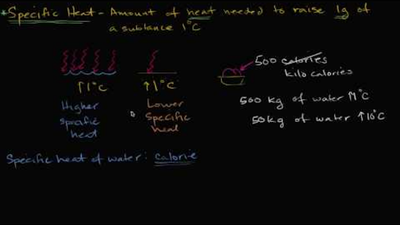 *Specific Heat - Amount of heat needed to raise 1g of
a substance 1°C
↑1°C
↑1°C
Higher
specific
heat
Lower
Specific
heat
500 calories
kilo calories
500 kg of water ↑1°C
50kg of water ↑10°C
Specific heat of water: calorie